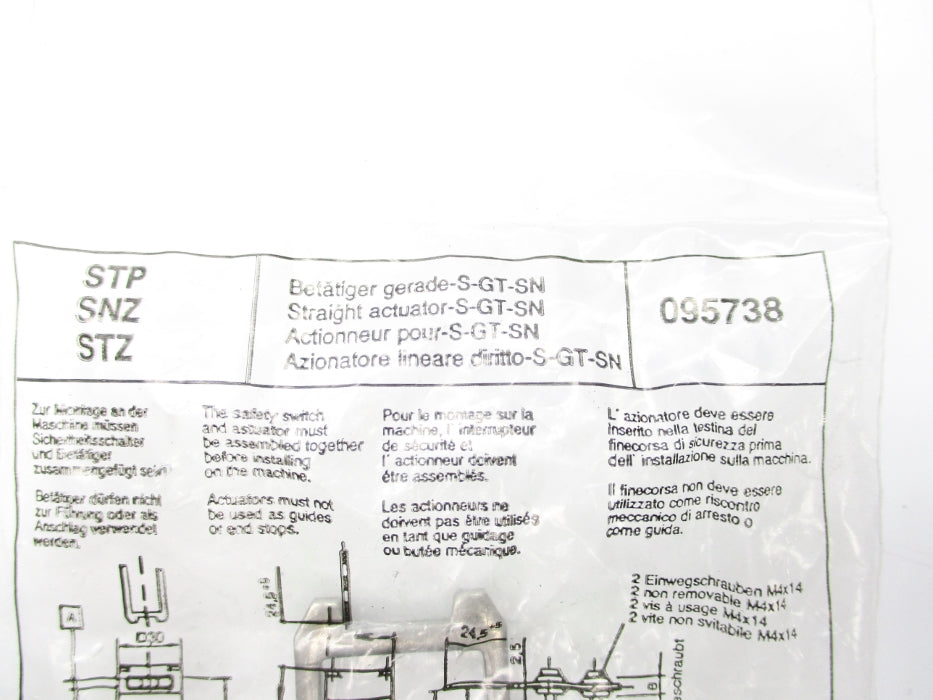 STP
SNZ
STZ
Betätiger gerade-S-GT-SN
Straight actuator-S-GT-SN
Actionneur pour-S-GT-SN
Azionatore lineare diritto-S-GT-SN
095738
Zur Montage an der
Maschine müssen
Sicherheitsschalter
und Betätiger
zusammengefügt sein
Betätiger dürfen nicht
zur Führung oder als
Anschlag verwendet
werden.
The safety switch
and astuator must
be assembled together
before installing
on the machine.
Actuators must not
be used as guides
or end stops.
Pour le montage sur la
machine, l' interrupteur
de sécurité et
l' actionneur doivent
être assemblés.
Les actionneurs ne
doivent pas être utilisés
en tant que guidage
ou butée mécanique.
L' azionatore deve essere
inserito nella testina del
finecorsa di sicurezza prima
dell' installazione sulla macchina.
Il finecorsa non deve essere
utilizzato come riscontro
meccanico di arresto o
come guida.
2 Einwegschrauben M4x14
2 non removable M4x14
2 vis à usage M4x14
2 vite non svitabile M4x14
A
□30
24,5+5
24,5+5
2,5
8
schraubt